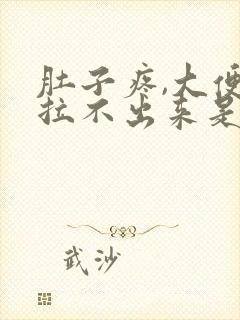 肚子疼,大便
拉不出来是
武沙